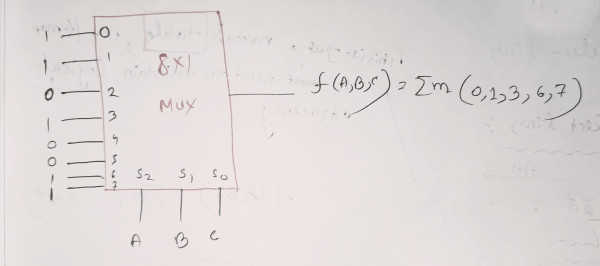 1 0.
1 1
8x1
0 2
MUX
f(A,B,C) = Σm (0,1,3,6,7)
1 3
0 4
0 5
1 6
1 7
S2 S1 S0
A B C